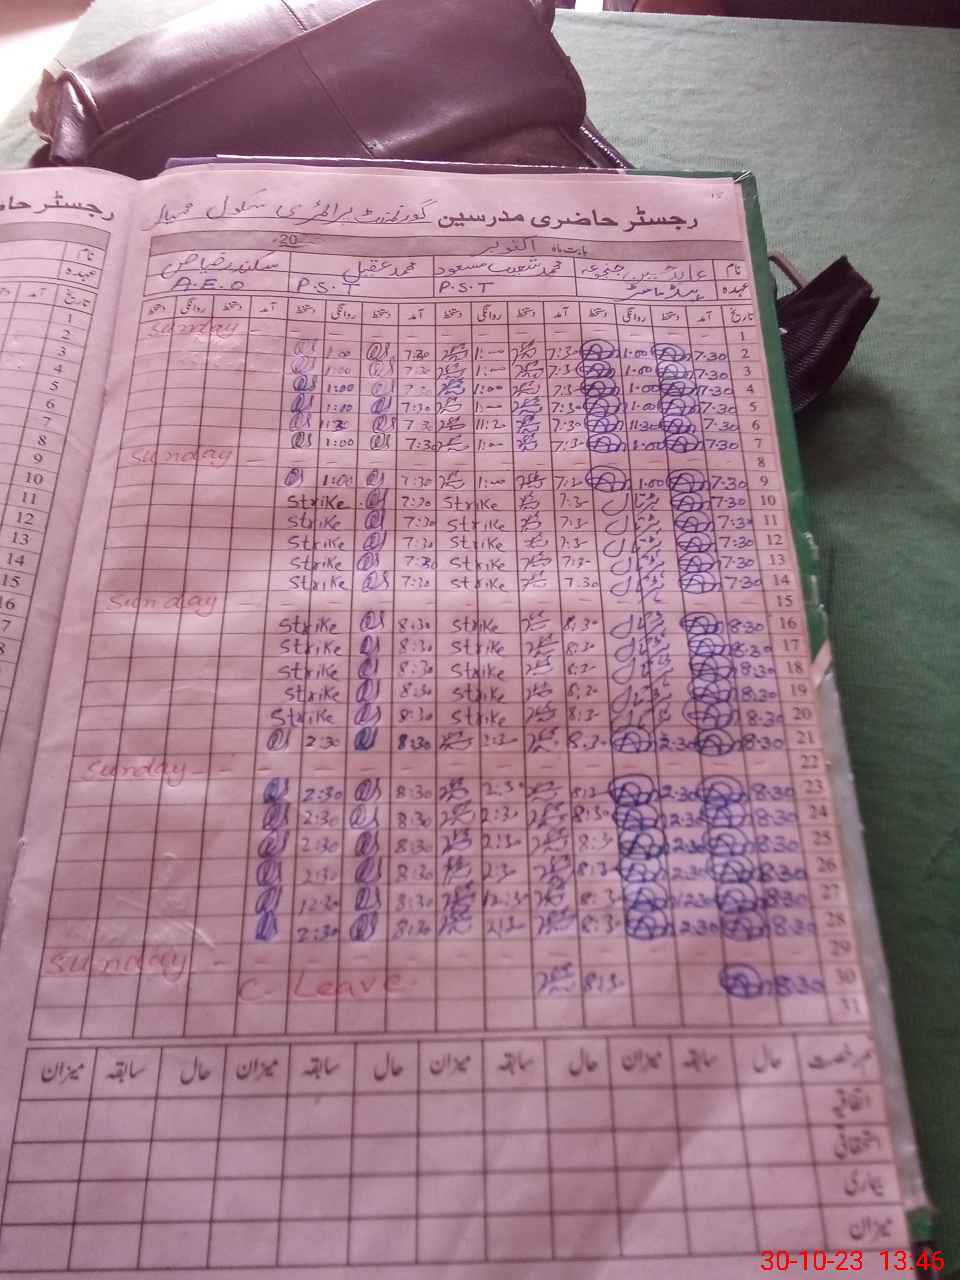 رجسٹر حاضری مدرسین گورنمنٹ پرائمری سکول
بابت ماہ اکتوبر 20
نام عابد حسین جنجوعہ محمد شعیب مسعود محمد عقیل سکندر ریاض
عہدہ ہیڈ ماسٹر P.S.T P.S.T A.E.O
تاریخ آمد دستخط روانگی دستخط آمد دستخط روانگی دستخط آمد دستخط روانگی دستخط آمد دستخط روانگی دستخط
1 Sunday
2 7:30 1:00 7:30 1:00 7:30 1:00
3 7:30 1:00 7:30 1:00 7:30 1:00
4 7:30 1:00 7:30 1:00 7:30 1:00
5 7:30 1:00 7:30 1:00 7:30 1:00
6 7:30 11:30 7:30 11:30 7:30 11:30
7 7:30 1:00 7:30 1:00 7:30 1:00
8 Sunday
9 7:30 1:00 7:30 1:00 7:30 1:00
10 7:30 ہڑتال 7:30 Strike 7:30 Strike
11 7:30 ہڑتال 7:30 Strike 7:30 Strike
12 7:30 ہڑتال 7:30 Strike 7:30 Strike
13 7:30 ہڑتال 7:30 Strike 7:30 Strike
14 7:30 ہڑتال 7:30 Strike 7:30 Strike
15 Sunday
16 8:30 ہڑتال 8:30 Strike 8:30 Strike
17 8:30 ہڑتال 8:30 Strike 8:30 Strike
18 8:30 ہڑتال 8:30 Strike 8:30 Strike
19 8:30 ہڑتال 8:30 Strike 8:30 Strike
20 8:30 ہڑتال 8:30 Strike 8:30 Strike
21 8:30 2:30 8:30 2:30 8:30 2:30
22 Sunday
23 8:30 2:30 8:30 2:30 8:30 2:30
24 8:30 2:30 8:30 2:30 8:30 2:30
25 8:30 2:30 8:30 2:30 8:30 2:30
26 8:30 2:30 8:30 2:30 8:30 2:30
27 8:30 12:30 8:30 12:30 8:30 12:30
28 8:30 2:30 8:30 2:30 8:30 2:30
29 Sunday
30 8:30 8:30 C. Leave
31
حال سابقہ میزان حال سابقہ میزان حال سابقہ میزان حال سابقہ میزان
اتفاقیہ
استحقاقی
بیماری
میزان
رجسٹر حا
نام
عہدہ
تاریخ آمد دستخط
1
2
3
4
5
6
7
8
9
10
11
12
13
14
15
16
30-10-23 13:46